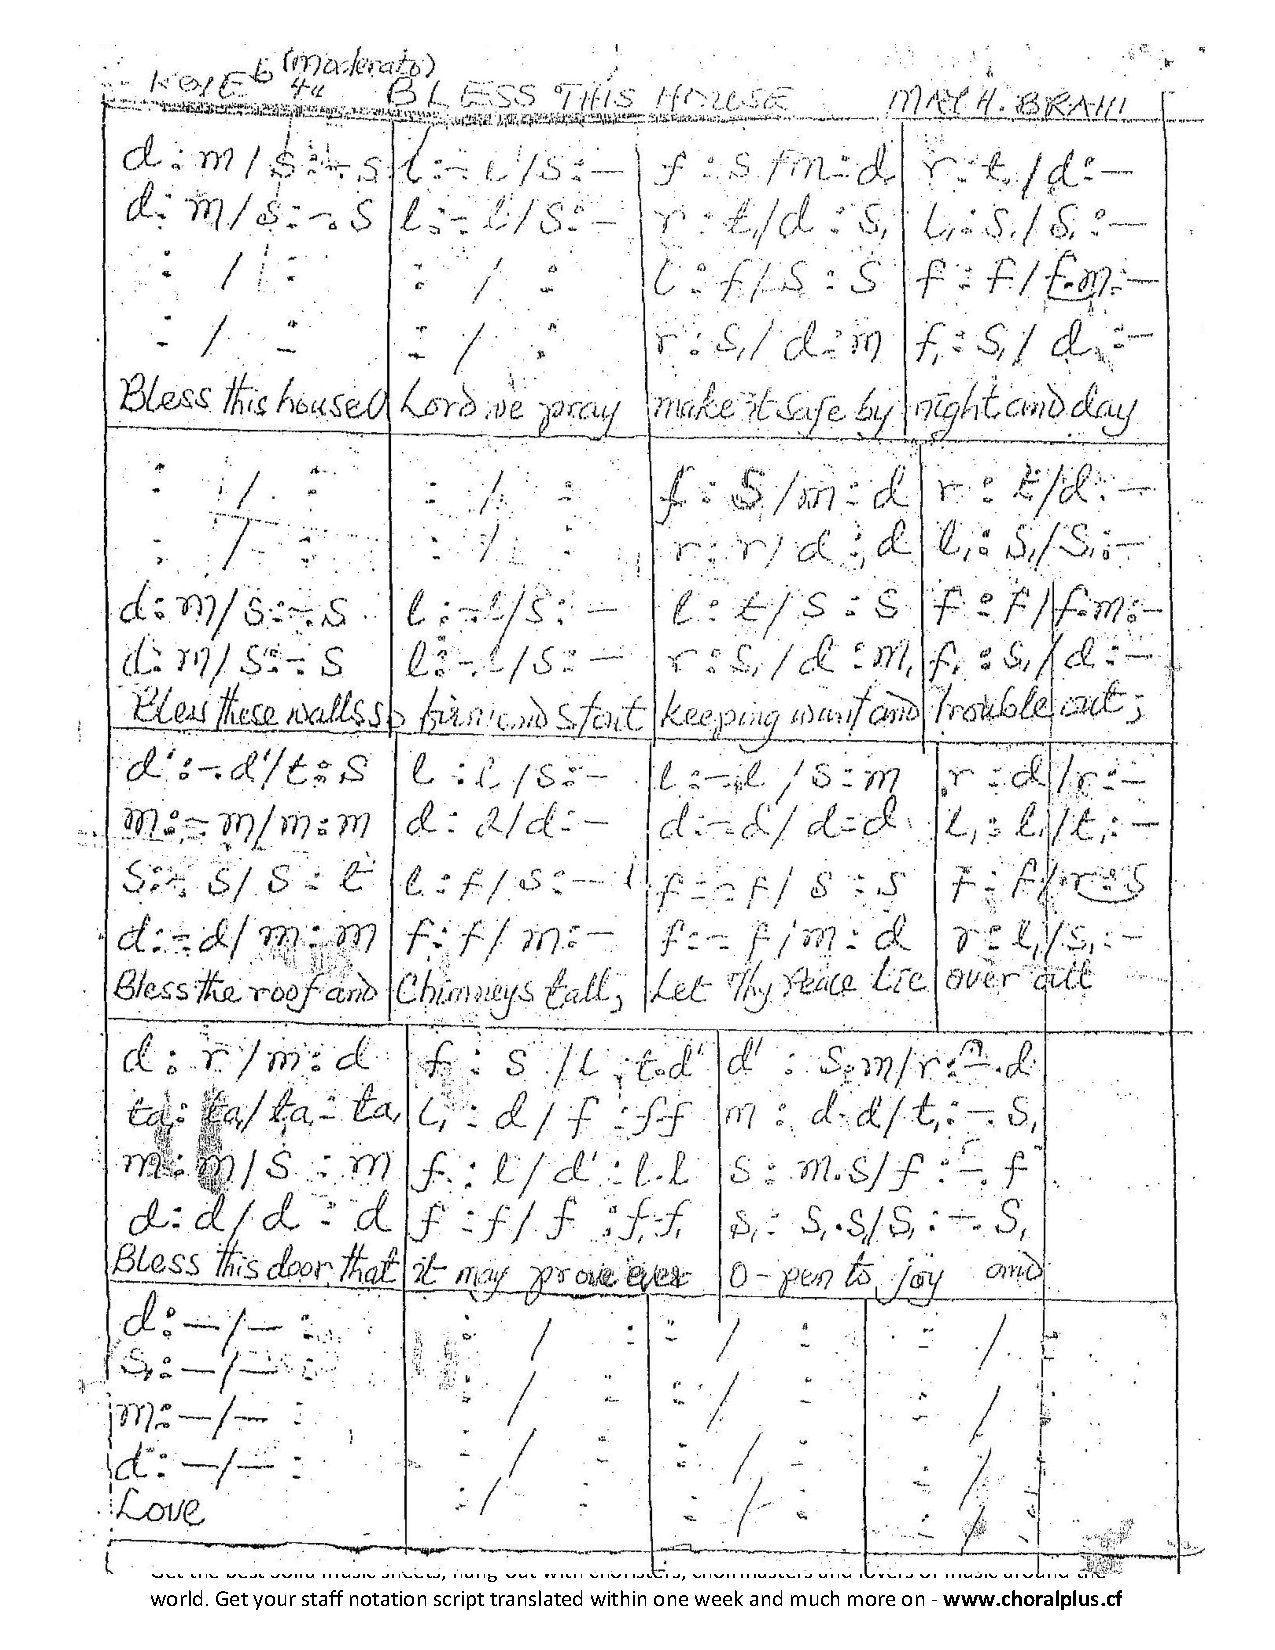 (moderato)
KEY Eb BLESS THIS HOUSE MAY H. BRAHE
d : m / s : - . s l : - . l / s : — f : s / m : d r : t, / d : —
d : m / s : - . s l : - . l / s : — r : t, / d : s, l, : s, / s, : —
: / : : / : l : f / s : s f : f / f.m : —
: / : : / : r : s, / d : m f, : s, / d, : —
Bless this house O Lord we pray make it safe by night and day
: / : : / : f : s / m : d r : t / d : —
: / : : / : r : r / d : d l, : s, / s, : —
d : m / s : - . s l : - . l / s : — l : t / s : s f : f / f.m : —
d : m / s : - . s l : - . l / s : — r : s, / d : m, f, : s, / d : —
Bless these walls so firm and stout keeping want and trouble out;
d' : - . d' / t : s l : l / s : — l : - . l / s : m r : d / r : —
m : - . m / m : m d : d / d : — d : - . d / d : d l, : l, / t, : —
s : - . s / s : t l : f / s : — f : - . f / s : s f : f / r : s
d : - . d / m : m f : f / m : — f : - . f / m : d r : l, / s, : —
Bless the roof and Chimneys tall, Let Thy Peace Lie over all
d : r / m : d f : s / l : t.d' d' : s.m / r : - . d
ta, : ta, / ta, : ta, l, : d / f : f.f m : d.d / t, : - . s,
m : m / s : m f : l / d' : l.l s : m.s / f : - . f
d : d / d : d f : f / f : f.f, s, : s,.s, / s, : - . s,
Bless this door that it may prove ever O-pen to joy and
d : — / — : : / : : / : : / :
s, : — / — : : / : : / : : / :
m : — / — : : / : : / : : / :
d : — / — : : / : : / : : / :
Love
Get the best solfa music sheets, hang out with choristers, choirmasters and lovers of music around the
world. Get your staff notation script translated within one week and much more on - www.choralplus.cf